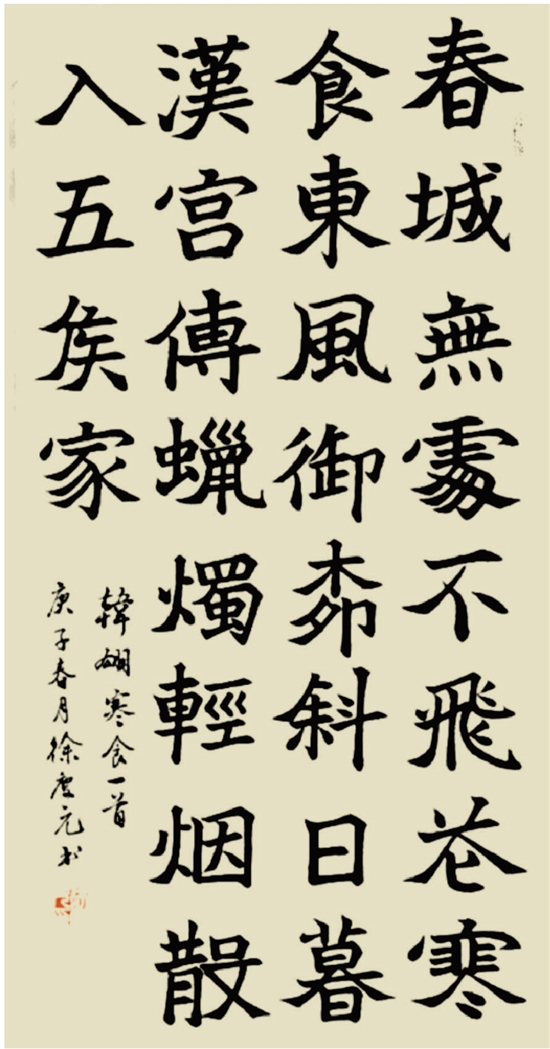 春城無處不飛花寒
食東風御柳斜日暮
漢宮傳蠟燭輕烟散
入五侯家
韓翃寒食一首
庚子春月徐度元书